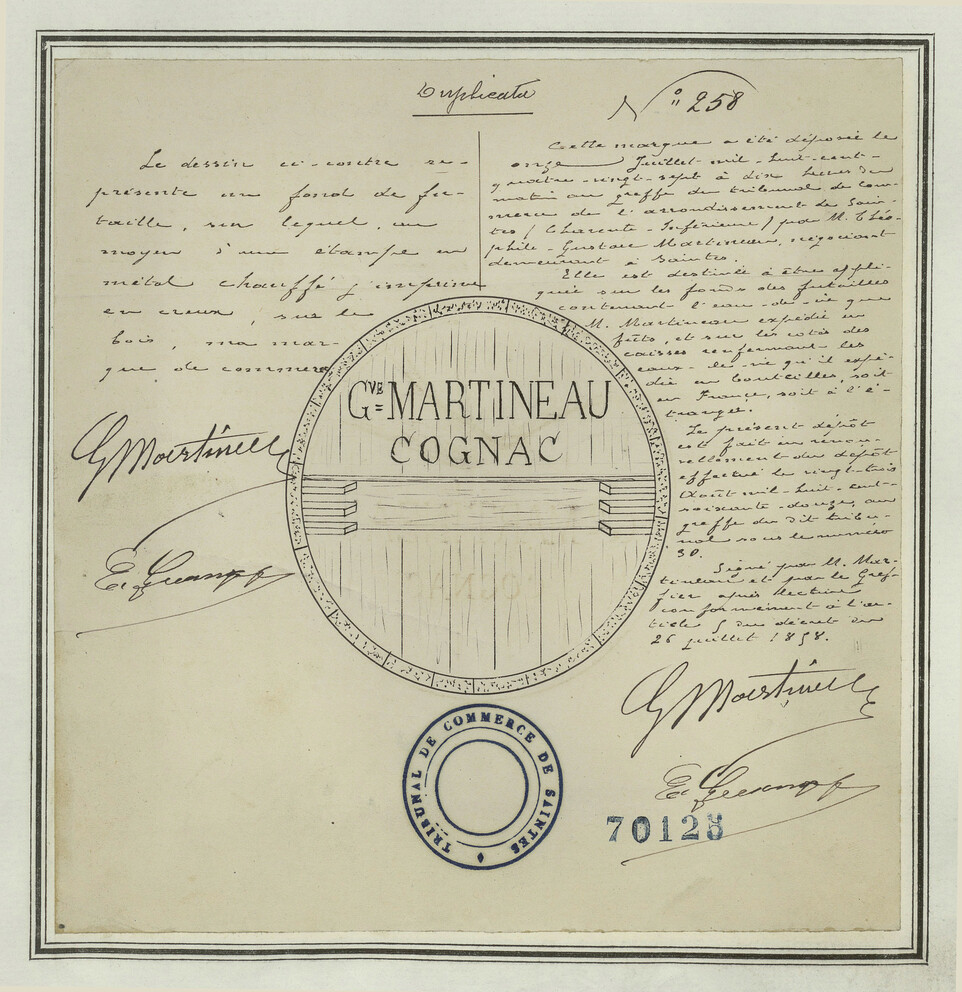 Duplicata
N° 258
Le dessin ci-contre re-
présente un fond de fu-
taille, sur lequel, au
moyen d'une étampe en
métal chauffé j'imprime
en creux, sur le
bois, ma mar-
que de commerce
GMartineau
Cette marque a été déposée le
onze Juillet mil-huit-cent-
quatre-vingt-sept à dix heures du
matin au greffe du tribunal de com-
merce de l'arrondissement de Sain-
tes (Charente-Inférieure) par M. Théo-
phile-Gustave Martineau, négociant
demeurant à Saintes.
Elle est destinée à être appli-
quée sur les fonds des futailles
contenant l'eau-de-vie que
M. Martineau expédie en
fûts, et sur les cotés des
caisses renfermant les
eaux-de-vie qu'il expé-
die en bouteilles, soit
en France, soit à l'é-
tranger.
Le présent dépôt
est fait en renou-
vellement du dépôt
effectué le vingt-trois
Août mil-huit-cent-
soixante-douze, au
greffe du dit tribu-
nal sous le numéro
30.
Signé par M. Mar-
tineau et par le Gref-
fier après lecture
conformément à l'ar-
ticle 5 du décret du
26 juillet 1858.
GMartineau
GVE MARTINEAU
COGNAC
TRIBUNAL DE COMMERCE DE SAINTES
70128